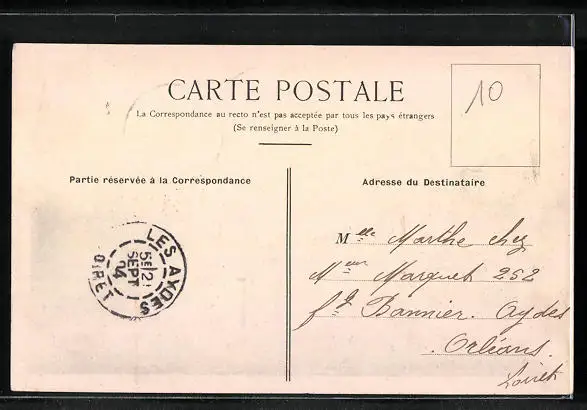 10
CARTE POSTALE
La Correspondance au recto n'est pas acceptée par tous les pays étrangers
(Se renseigner à la Poste)
Partie réservée à la Correspondance
Adresse du Destinataire
LES AYDES
SEPT
24
LOIRET
Melle Marthe chez
Meur Marquet 252
fg Bannier. Aydes
Orléans.
Loiret